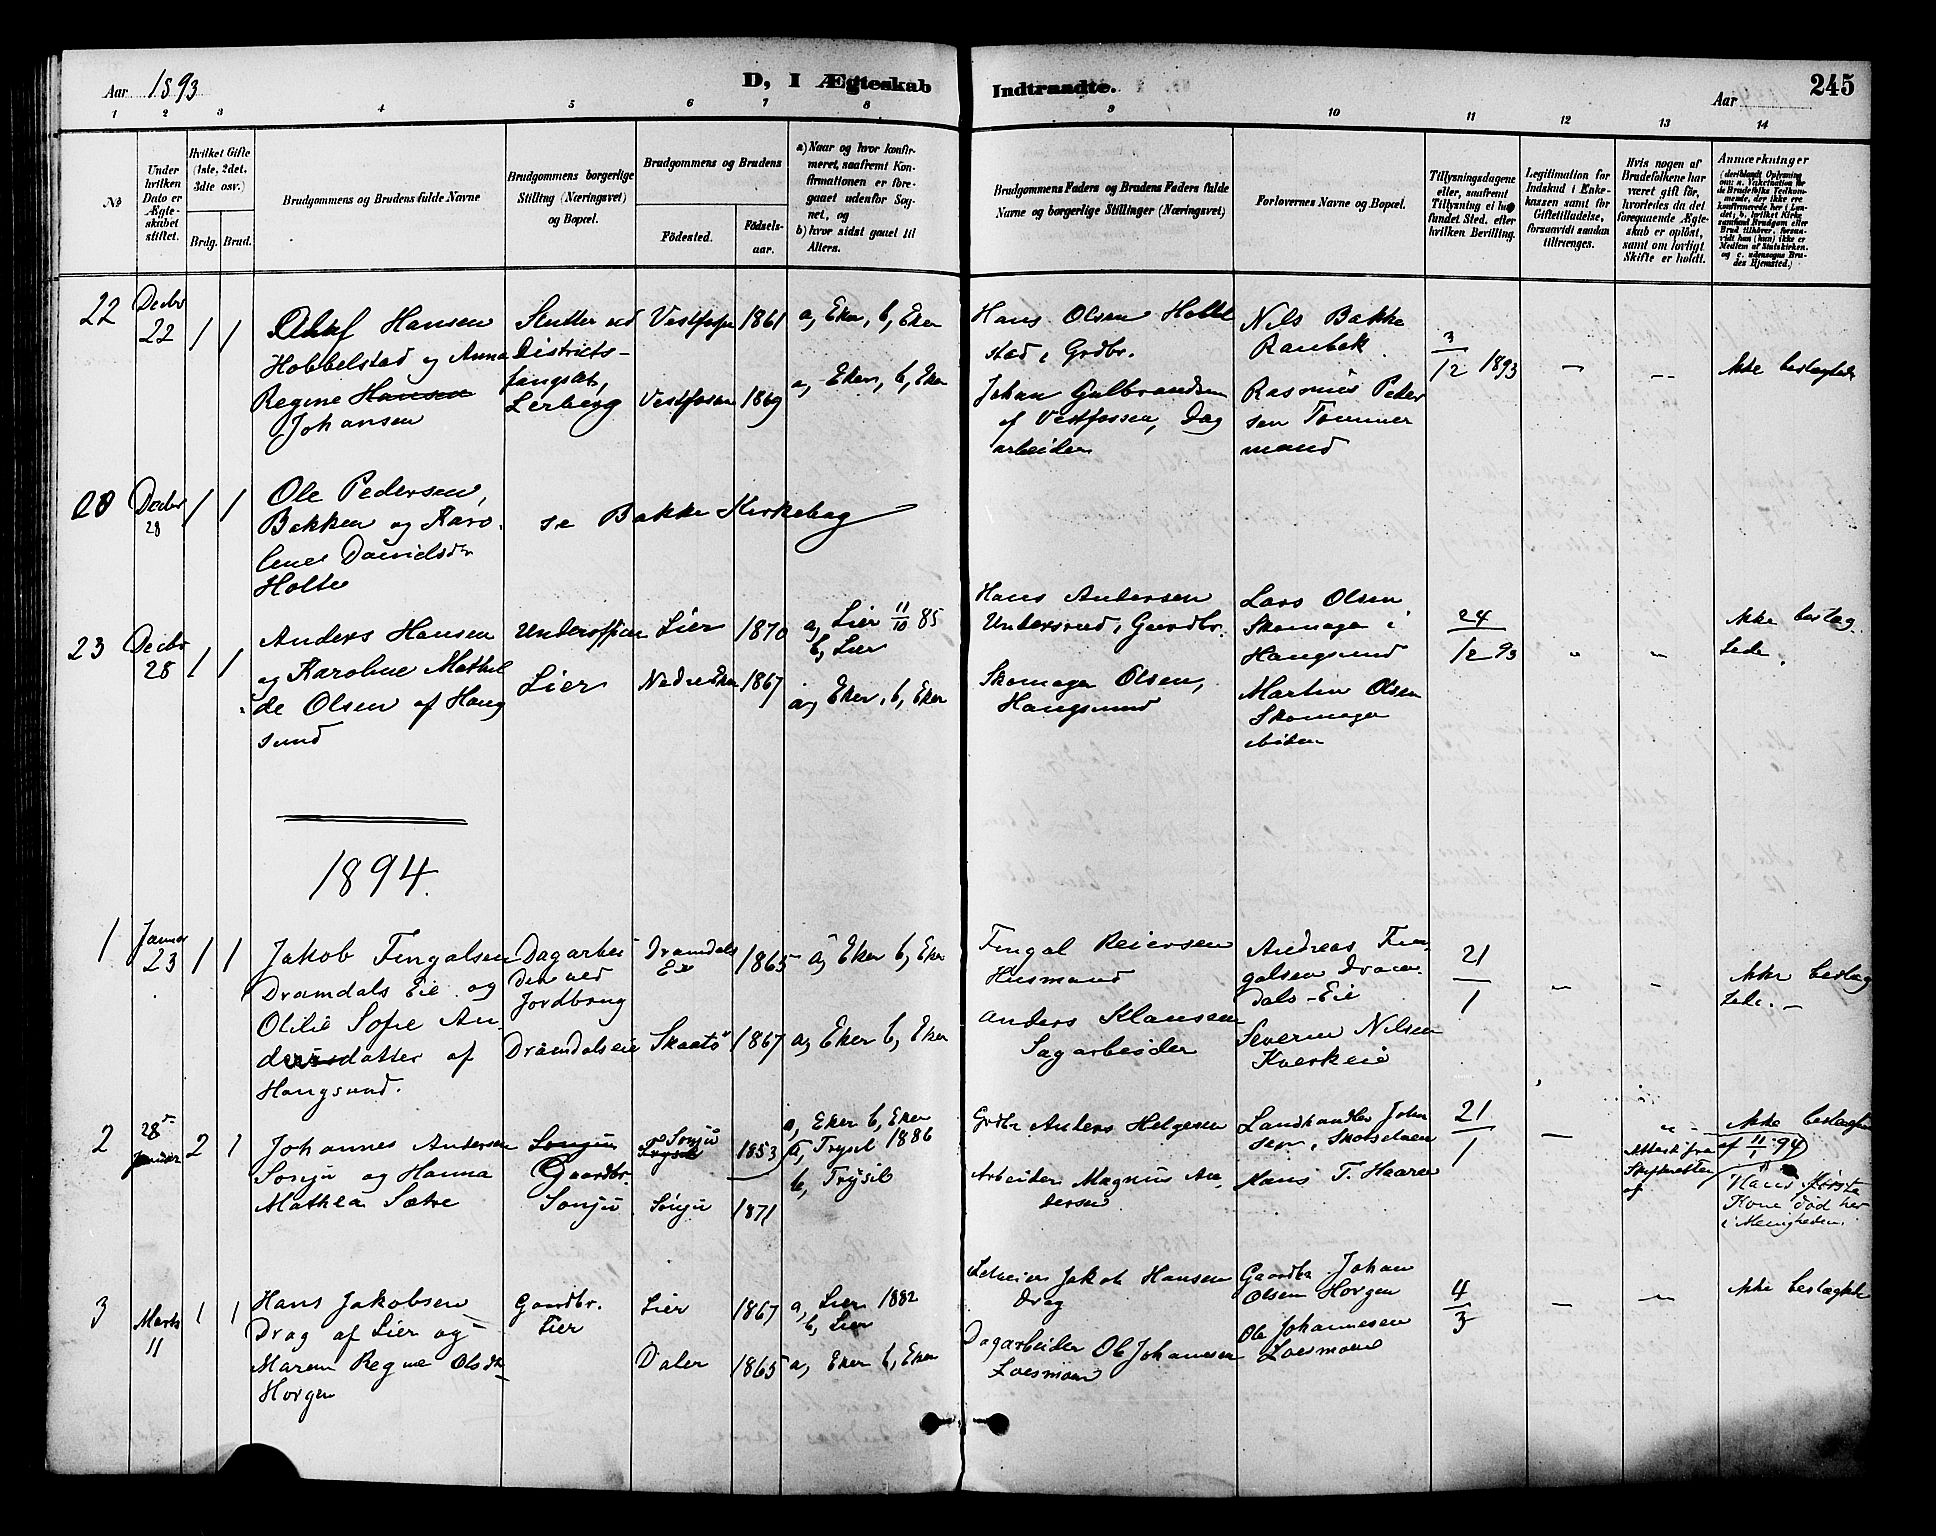 Aar 1893
D, I Ægteskab Indtraadte.
Aar
245
1 2 3 4 5 6 7 8 9 10 11 12 13 14
No
Under hvilken Dato er Ægteskabet stiftet.
Hvilket Gifte (1ste, 2det, 3die osv.)
Brdg. Brud.
Brudgommens og Brudens fulde Navne
Brudgommens borgerlige Stilling (Næringsvei) og Bopæl.
Brudgommens og Brudens
Födested.
Födselsaar.
a) Naar og hvor konfirmeret, saafremt Konfirmationen er foregaaet udenfor Sognet, og
b) hvor sidst gaaet til Alters.
Brudgommens Faders og Brudens Faders fulde Navne og borgerlige Stillinger (Næringsvei)
Forlovernes Navne og Bopæl.
Tillysningsdagene eller, saafremt Tillysning ei har fundet Sted, efter hvilken Bevilling.
Legitimation for Indskud i Enkekassen samt for Giftetilladelse, forsaavidt saadan tiltrænges.
Hvis nogen af Brudefolkene har været gift för, hvorledes da det foregaaende Ægteskab er oplöst, samt om lovligt Skifte er holdt.
Anmærkninger
22
Decbr 22
1 1
Hansen
Hobbelstad og Anna
Regine Hansen
Johansen
Slutter ved
Districts-
fængslet,
Lerberg
Vestfossen 1861
Vestfossen 1869
a, Eker, b, Eker
a, Eker, b, Eker
Hans Olsen Hobbel
stad, Grdbr.
Johan Gulbrandsen
af Vestfossen, Dag
arbeider
Nils Bakke
Ranbak
Rasmus Peder
sen Tømmer
mand
3/12 1893
-
-
Ikke beslægtede
Decbr 28
1 1
Ole Pedersen,
Bakken og Karo-
line Davidsdtr
Holte
se Bakke Kirkebog
23
Decbr 28
1 1
Anders Hansen
og Karoline Mathil
de Olsen af Houg
sund
Underofficer
Lier
Lier 1870
Nedre Eker 1867
a, Lier 11/10 85
b, Lier
a, Eker, b, Eker
Hans Andersen
Gaardbr.
Skomager Olsen,
Hougsund
Lars Olsen
Skomager i
Hougsund
Martin Olsen
Skomager
ibiden
24/12 93
"
"
Ikke beslæg
tede.
1894.
1
Januar 23
1 1
Jakob Fingalsen
Dramdals Eie og
Olilie Sofie An
dersdatter af
Hougsund.
Dagarbei
der ved
Jordbrug
Dramdalseie
Dramdals
Eie 1865
Skaatö 1867
a, Eker b, Eker
a, Eker b, Eker
Fingal Reiersen
Husmand
Anders Klausen
Sagarbeider
Andreas Fin
galsen Dram
dals-Eie
Severin Nilsen
Kverkeie
21/1
"
-
Ikke beslæg
tede. -
2
28de Januar
2 1
Johannes Andersen
Sonju og Hanna
Mathea Sætre
Sonju
Gaardbr.
Sonju
Sonju
Trysil 1853
Sonju 1871
a, Eker b, Eker
a, Trysil 1886
b, Trysil
Grdbr Anders Helgesen
Arbeider Magnus An
dersen
Landhandler John
sen, Skotselven
Hans T. Haaren
21/1
-
" -
Attest fra
Skifteretten
af
Ikke beslægtede
af 11/1 94)
Hans første
Kone død her
i Menigheden.
3
Marts 11
1 1
Hans Jakobsen
Drag af Lier og
Maren Regine Olsdtr
Horgen
Gaardbr.
Lier
Lier 1867
Daler 1865
a, Lier 1882
b, Lier
a, Eker b, Eker
Selveier Jakob Hansen
Drag
Dagarbeider Ole Johanesen
Loesmoen
Gaardbr Johan
Olsen Horgen
Ole Johannesen
Loesmoen
4/3
-
"
Ikke beslægtede